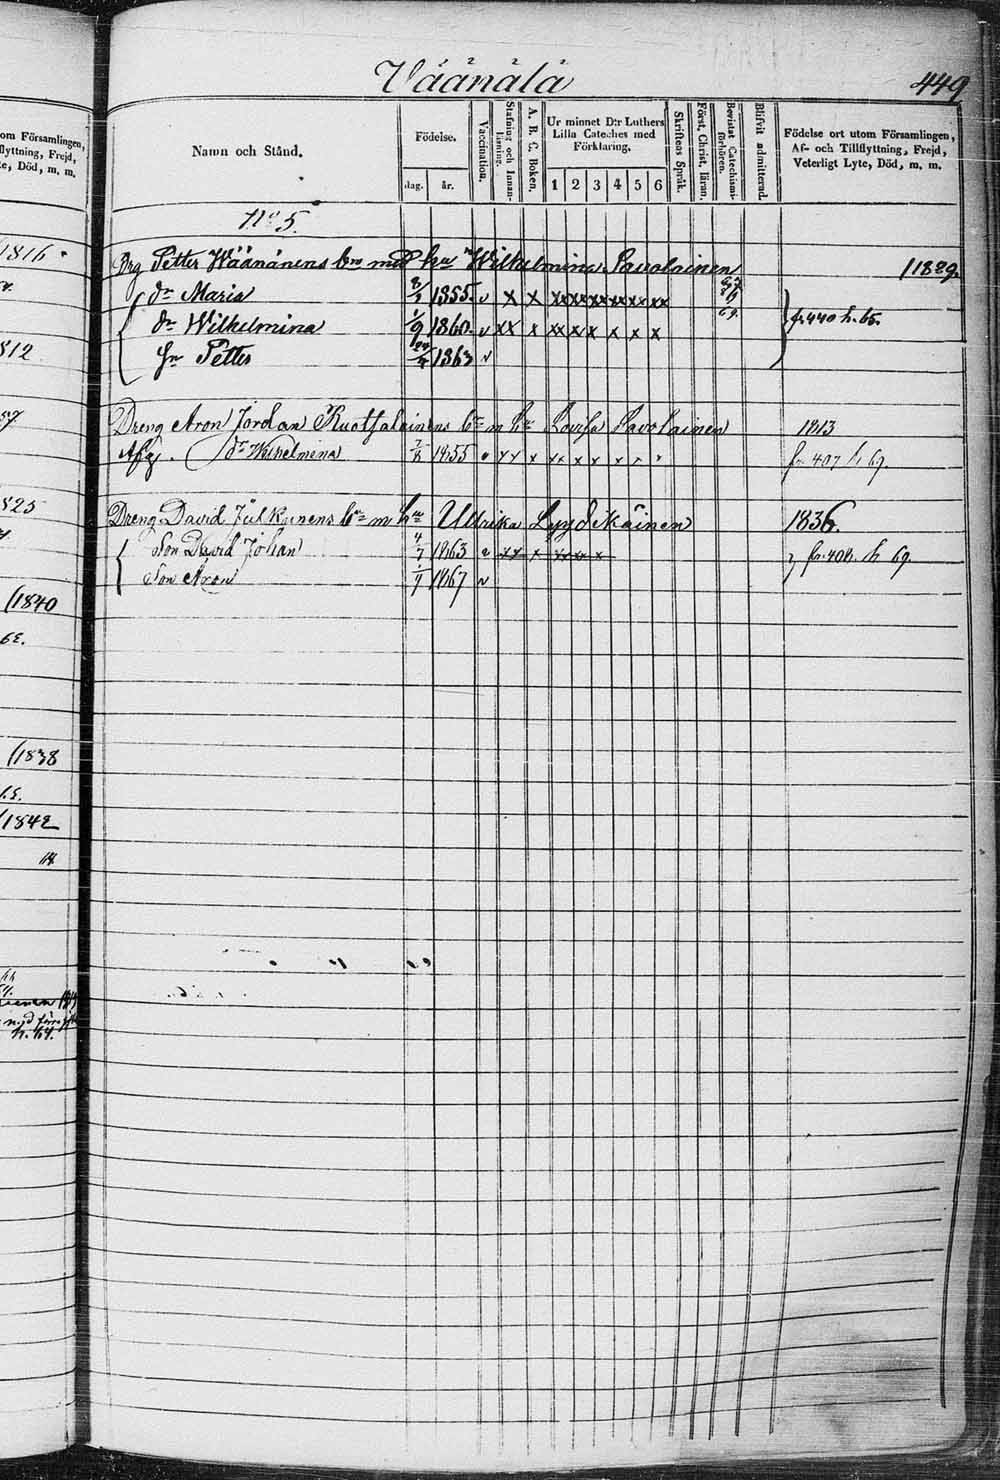 Väänälä 449
om Församlingen,
flyttning, Frejd,
te, Död, m. m.
Namn och Stånd.
Födelse.
dag. år.
Vaccination.
Stafning och Innanläsning.
A. B. C. Boken.
Ur minnet D:r Luthers
Lilla Cateches med
Förklaring.
1 2 3 4 5 6
Skriftens Språk.
Först, Christ, läran.
Bevistat Catechismiförhören.
Blifvit admitterad.
Födelse ort utom Församlingen,
Af- och Tillflyttning, Frejd,
Veterligt Lyte, Död, m. m.
No 5.
Drg Petter Wäänänens bn med hu Wilhelmina Savolainen /1829.
dr Maria 1855. v x x xx xx xx xx xx xx
dr Wilhelmina 1/9 1860. v xx x xx x x x x x fr. 440 h. 65.
sn Petter 1863 v
Dreng Aron Jordan Ruotsalainens bn m hu Lovisa Savolainen 1813
Afg. dr Wilhelmina 1855 v xx x xx x x x x x fr. 407 h 69.
Dreng David Julkunens bn m hu Ulrika Lyydikäinen 1836.
Son David Johan 4/7 1863 v xx x xx xx x fr. 408. h 69.
Son Aron 1867 v
1816
812
57
825
(1840
62.
(1838
/1842